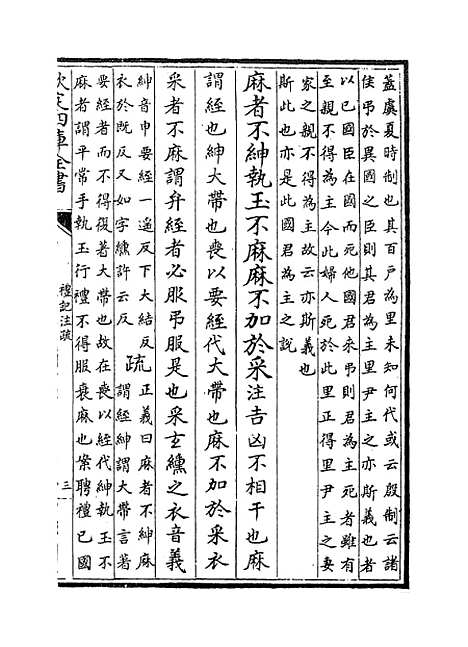 蓋虞夏時制也其百户為里未知何代或云殷制云諸
侯弔於異國之臣則其君為主里尹主之亦斯義也者
以已國臣在國而死他國君來弔則君為主死者雖有
至親不得為主今此婦人死於此里正得里尹主之妻
家之親不得為主故云亦斯義也
斯此也亦是此國君為主之説
麻者不紳執玉不麻麻不加於采注吉凶不相干也麻
謂絰也紳大帶也喪以要絰代大帶也麻不加於采衣
采者不麻謂弁絰者必服弔服是也采玄纁之衣音義
紳音申要絰一遥反下大結反
衣於既反又如字纁許云反
疏
正義曰麻者不紳麻
謂絰紳謂大帶言著
要絰者而不得復著大帶也故在喪以絰代紳執玉不
麻者謂平常手執玉行禮不得服衰麻也案聘禮已國
欽定四庫全書
禮記注疏
三